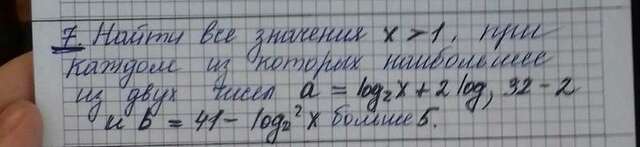 7. Найти все значения x > 1, при
каждом из которых наибольшее
из двух чисел a = log₂x + 2 log, 32 - 2
и b = 41 - log₂²x больше 5.